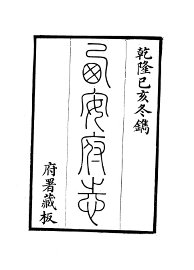 乾隆己亥冬鐫
西安府志
府署藏板